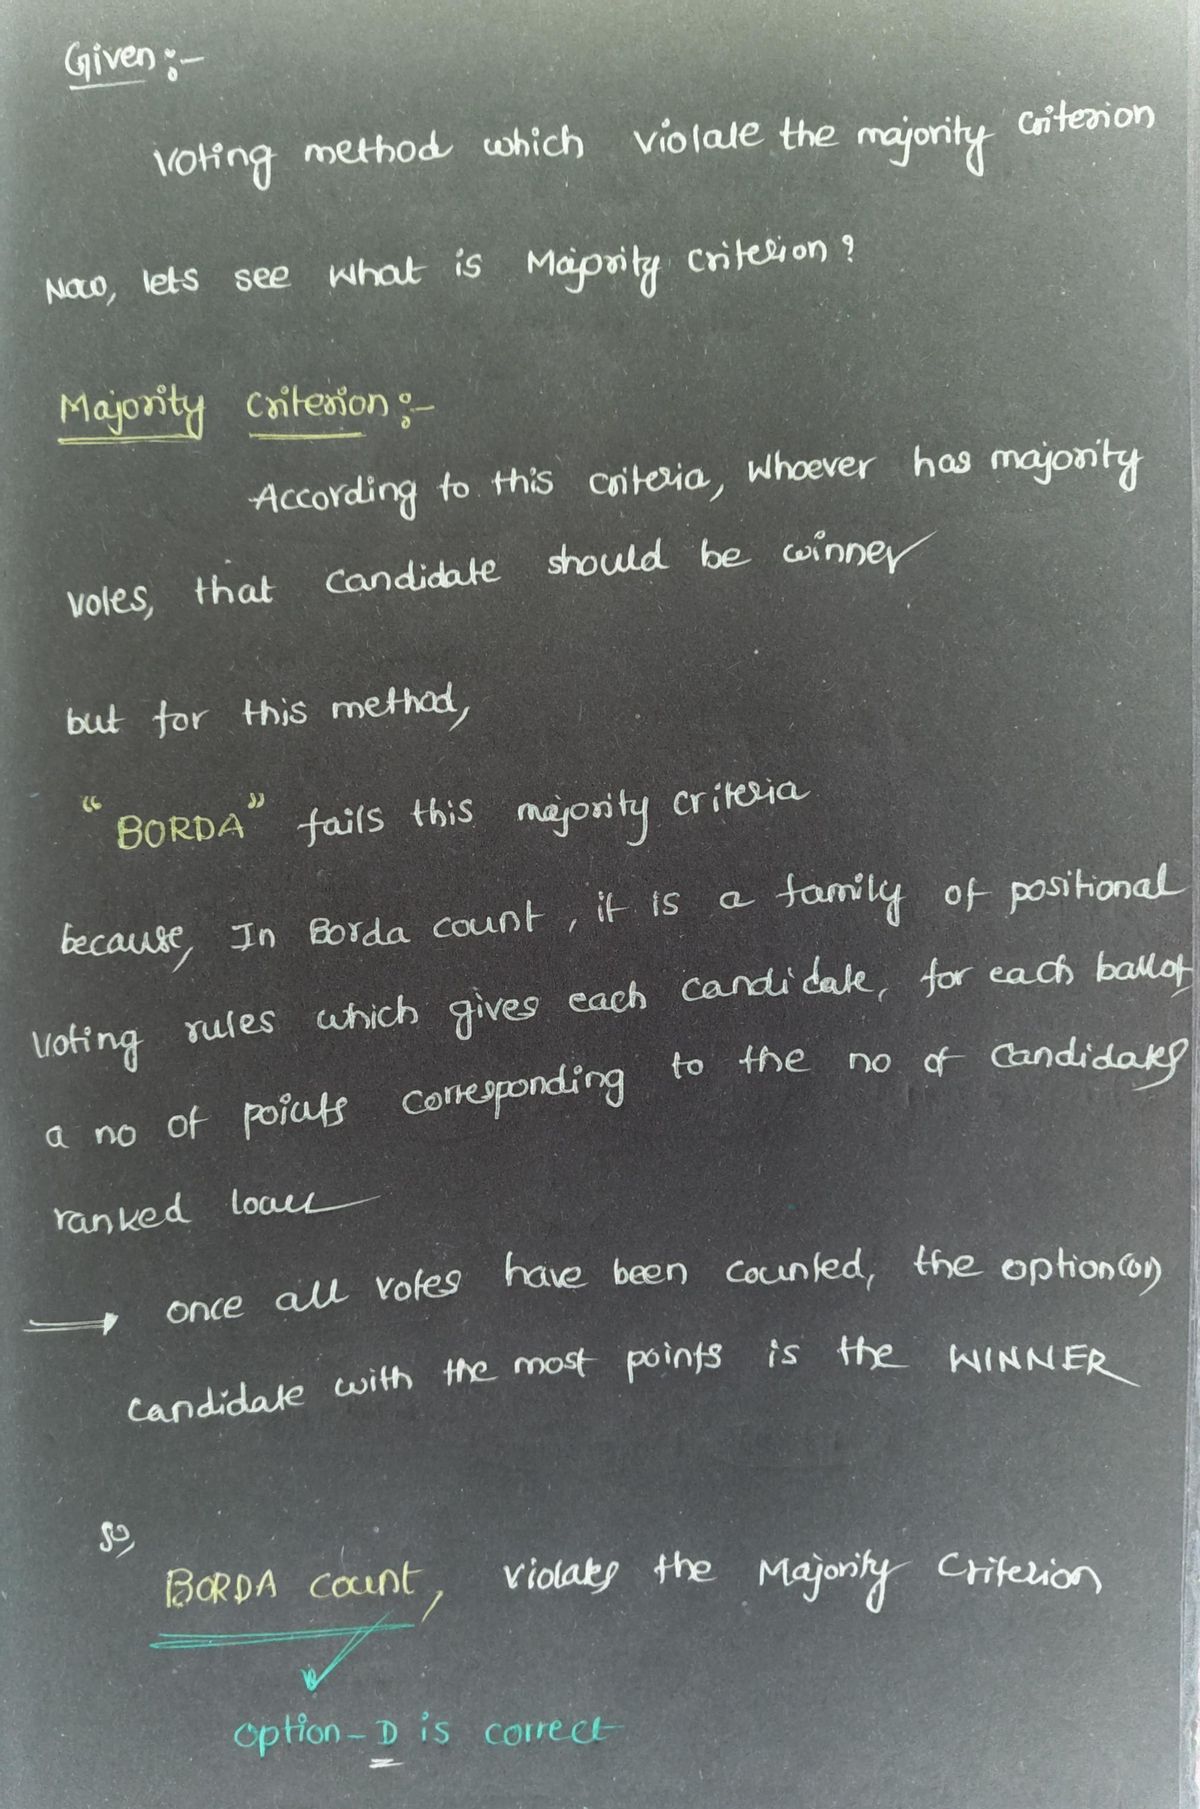 Given :-
Voting method which violate the majority criterion
Now, lets see what is Majority criterion ?
Majority criterion :-
According to this criteria, whoever has majority
votes, that candidate should be winner
but for this method,
"BORDA" fails this majority criteria
because, In Borda count, it is a family of positional
voting rules which gives each candidate, for each ballot
a no of points corresponding to the no of candidates
ranked lower
→ once all votes have been counted, the option (or)
candidate with the most points is the WINNER
so,
BORDA count, violates the Majority Criterion
option - D is correct